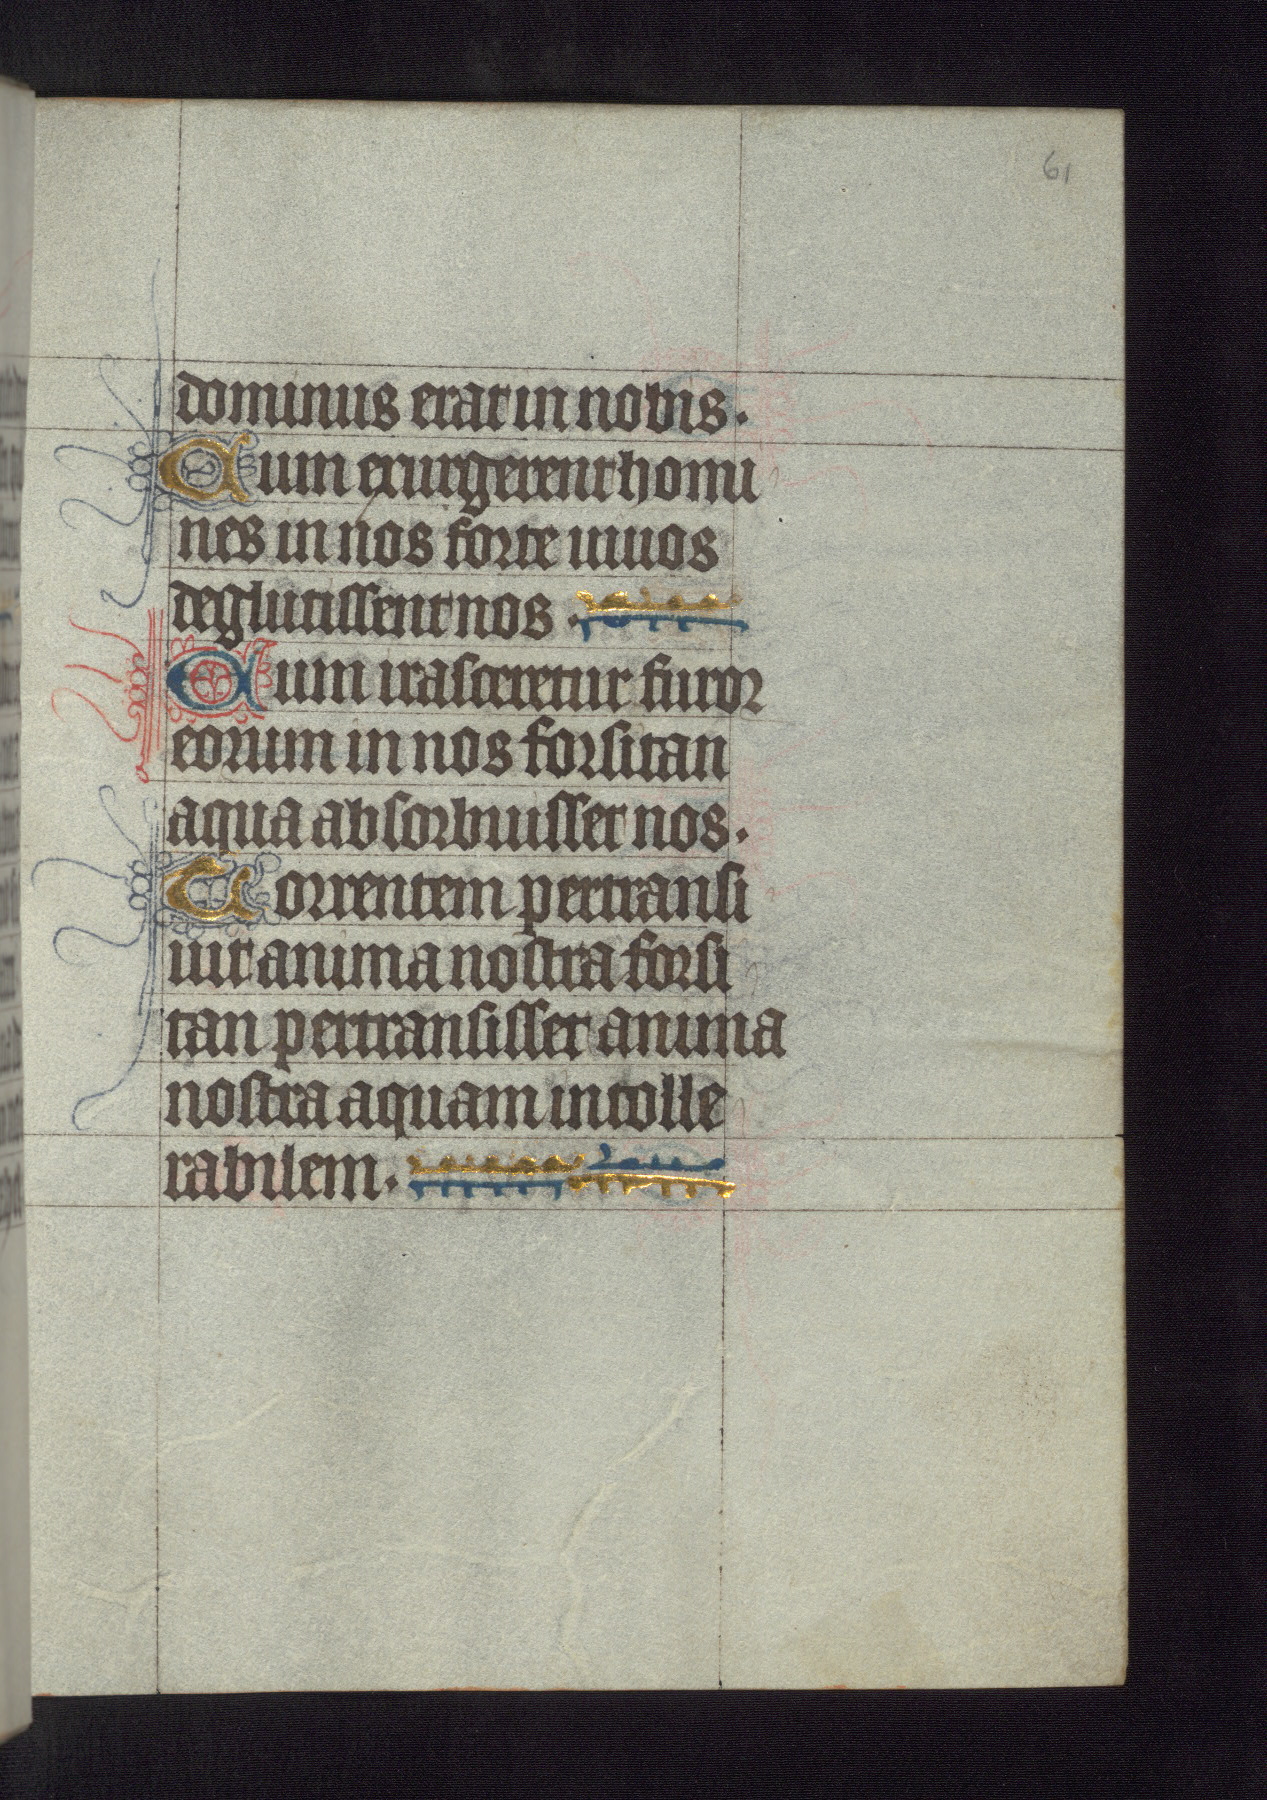 61
dominus erat in nobis.
Cum exurgerent homi
nes in nos forte uiuos
deglutissent nos.
Cum irasceretur furor
eorum in nos forsitan
aqua absorbuisset nos.
Torrentem pertransi
uit anima nostra forsi
tan pertransisset anima
nostra aquam intolle
rabilem.